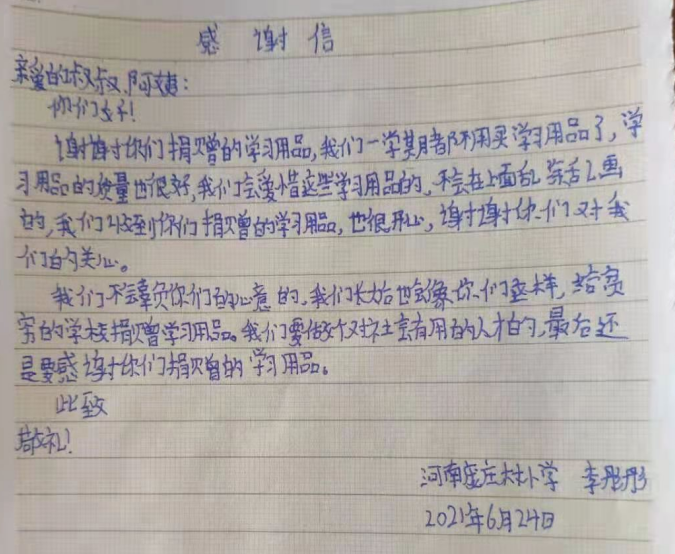 感谢信
亲爱的叔叔、阿姨：
你们好！
谢谢你们捐赠的学习用品，我们一学期都不用买学习用品了，学
习用品的质量也很好，我们会爱惜这些学习用品的，不会在上面乱写乱画
的，我们收到你们捐赠的学习用品，也很开心，谢谢你们对我
们的关心。
我们不会辜负你们的心意的，我们长大后也会像你们这样，给贫
穷的学校捐赠学习用品。我们要做个对社会有用的人才的，最后还
是要感谢你们捐赠的学习用品。
此致
敬礼！
河南 庄村小学 李彤彤
2021年6月24日